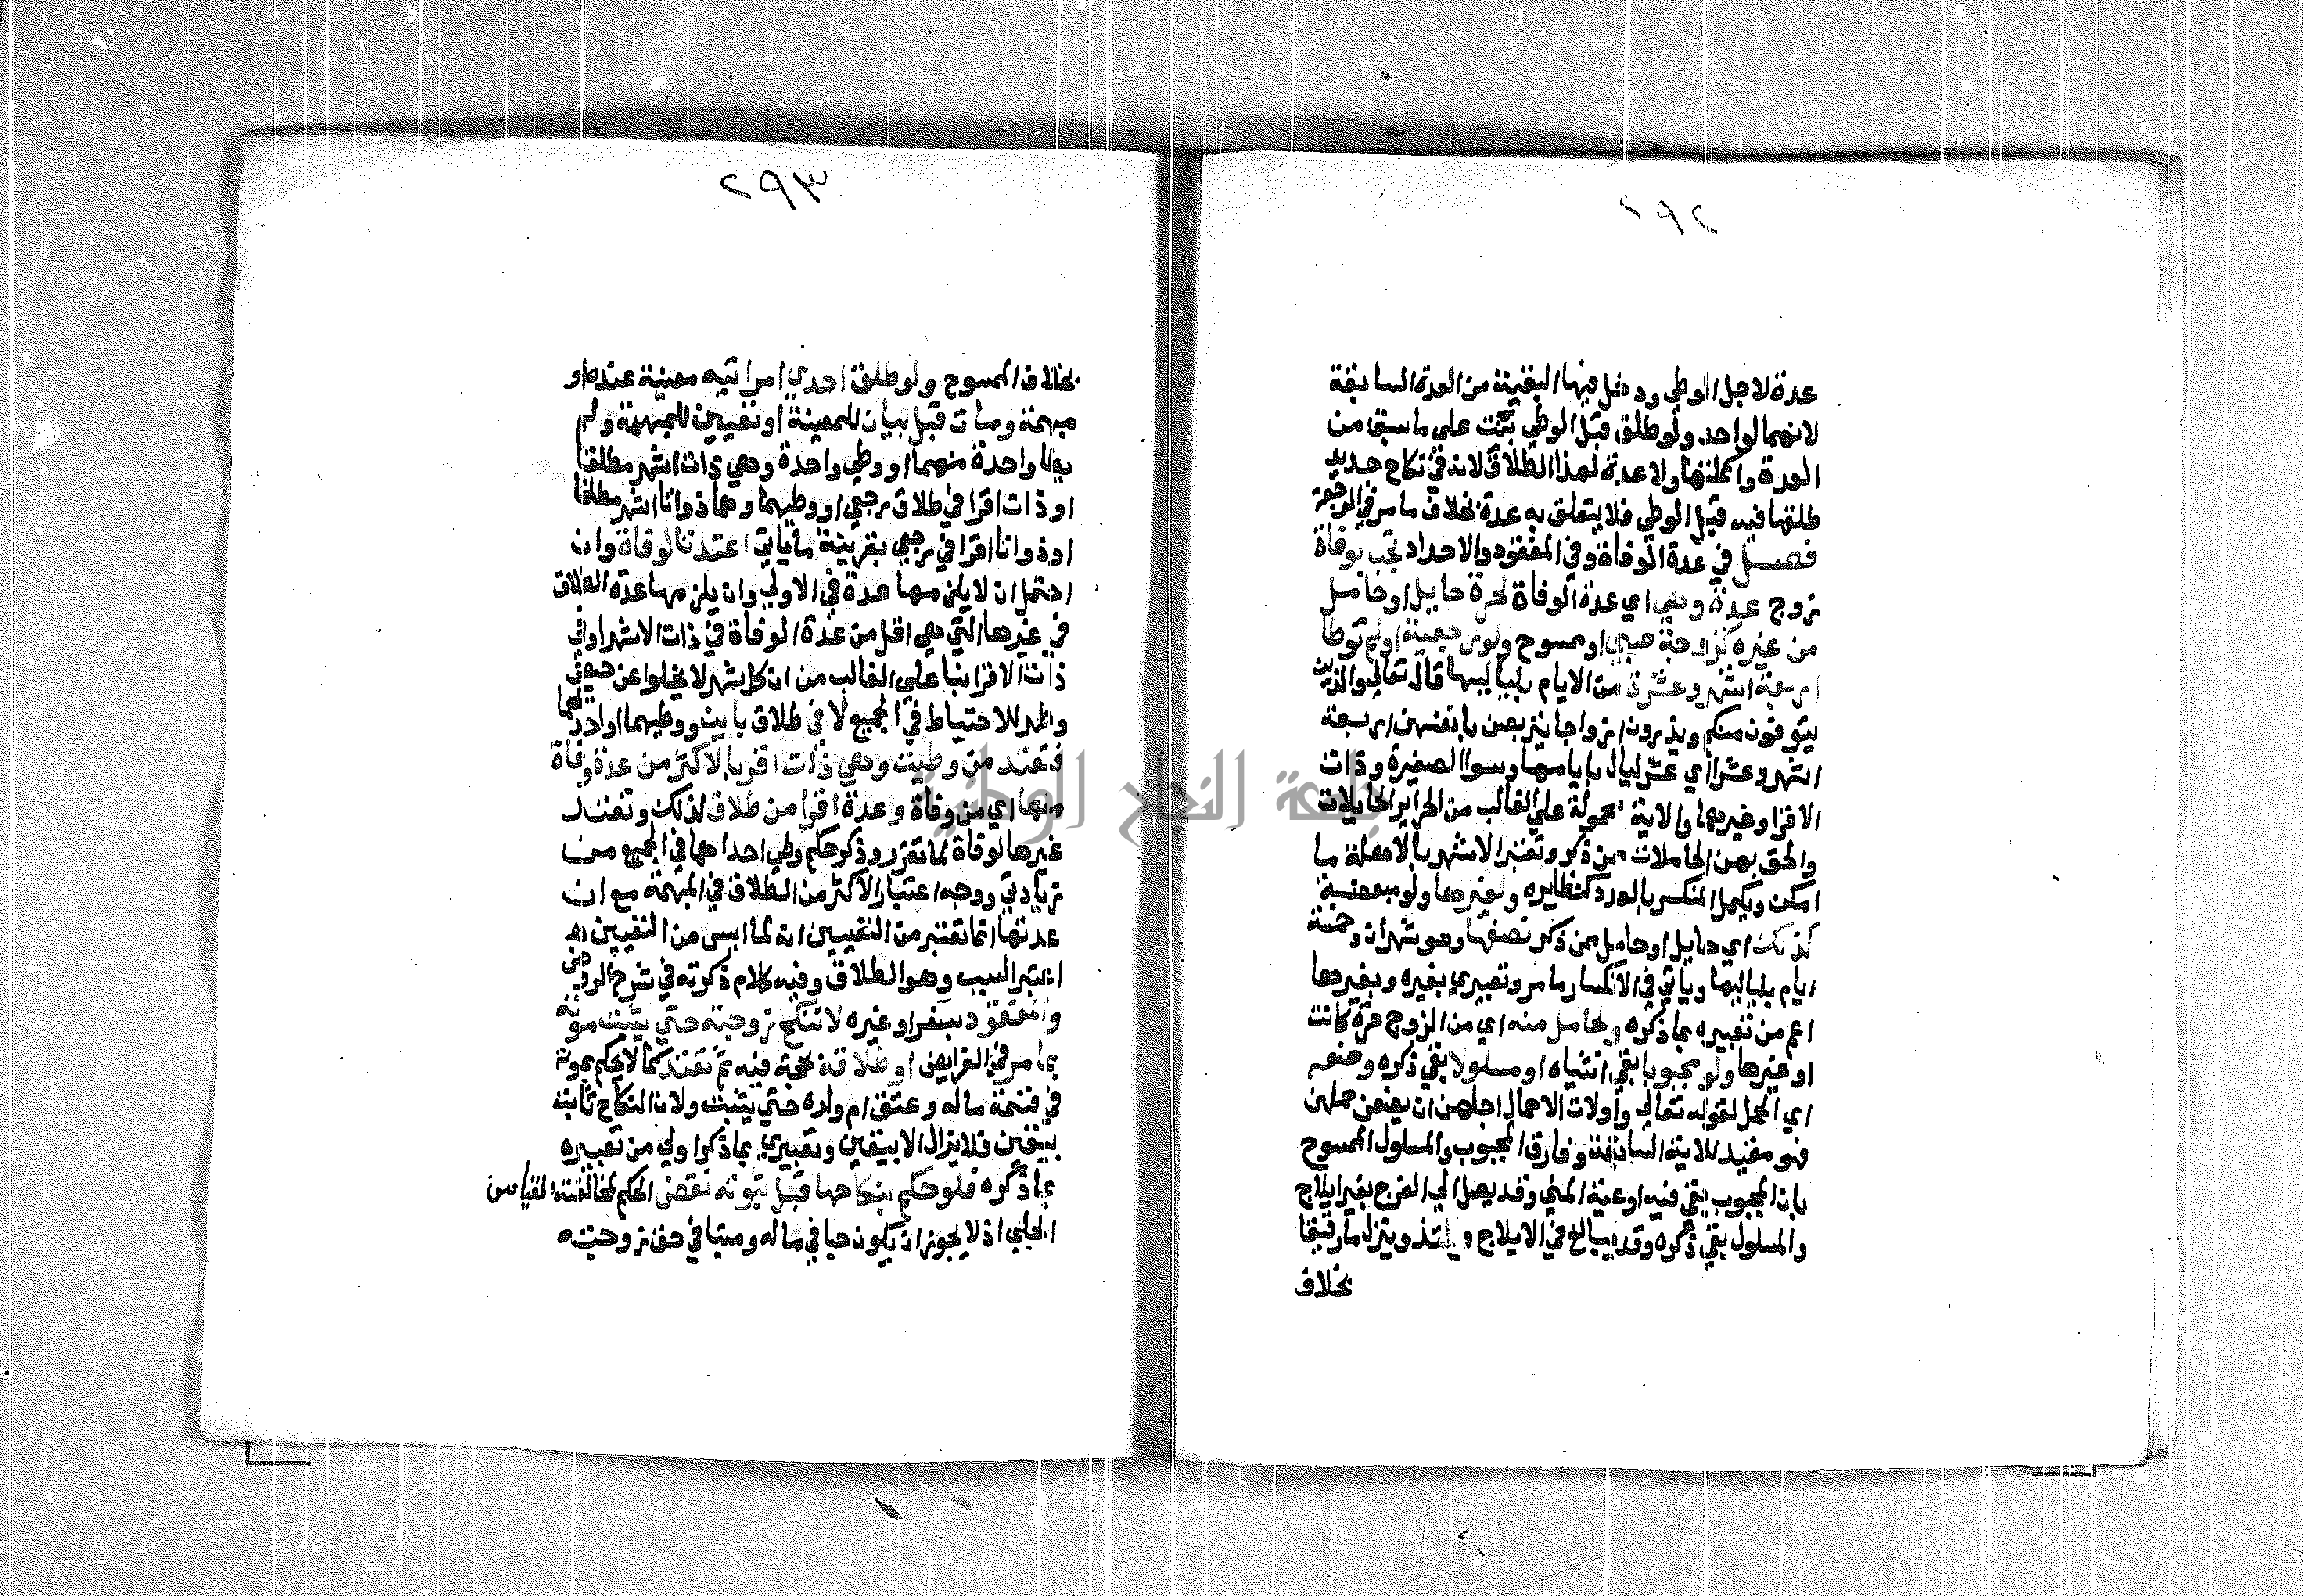 ٢٩٢
عدة لاجل الوطي ودخل فيها البقية من العدة السابقة
لانهما لواحد ولو طلق قبل الوطي بنت على ما سبق من
العدة واكملتها ولا عدة لهذا الطلاق لانه في نكاح جديد
طلقها فيه قبل الوطي فلا يتعلق به عدة بخلاف ما مر في الرجعة
فصل في عدة الوفاة وفي المفقود والاحداد تجب بوفاة
زوج عدة وهي اي عدة الوفاة لحرة حايل او حامل
من غيره كزوجة صبي او ممسوح ولو رجعية او لم توطا
اربعة اشهر وعشرة من الايام بلياليها قال تعالى والذين
يتوفون منكم ويذرون ازواجا يتربصن بانفسهن اربعة
اشهر وعشرا اي عشر ليال بايامها وسوا الصغيرة وذات
الاقرا وغيرهما والاية محمولة علي الغالب من الحراير الحايلات
والحق بهن الحاملات ممن ذكر وتعتبر الاشهر بالاهلة ما
امكن ويكمل المنكسر بالعدد كنظايره ولغيرها ولو مبعضة
كذلك اي حايل او حامل ممن ذكر نصفها وهو شهران وخمسة
ايام بلياليها وياتي في الانكسار ما مر وتعبيري بغيره وبغيرها
اعم من تعبيره بما ذكره ولحامل منه اي من الزوج حرة كانت
او غيرها ولو مجبوبا بقي انثياه او مسلولا بقي ذكره وضعه
اي الحمل لقوله تعالي وأولات الاحمال اجلهن ان يضعن حملهن
فهو مقيد للاية السابقة وفارق المجبوب والمسلول الممسوح
بان المجبوب بقي فيه اوعية المني وقد يصل الي الفرج بغير ايلاج
والمسلول بقي ذكره وقد يبالغ في الايلاج ويلتذ وينزل ما رقيقا
بخلاف
٢٩٣
بخلاف الممسوح ولو طلق احدي امراتيه معينة عنده او
مبهمة ومات قبل بيان للمعينة او تعيين للمبهمة ولم
يطا واحدة منهما او وطي واحدة وهي ذات اشهر مطلقا
او ذات اقرا في طلاق رجعي او وطيهما وهما ذواتا اشهر مطلقا
او ذواتا اقرا في رجعي بقرينة ما ياتي اعتدتا لوفاة وان
احتمل ان لا يلزمها عدة في الاولي وان يلزمها عدة الطلاق
في غيرها التي هي اقل من عدة الوفاة في ذات الاشهر او في
ذات الاقرا بنا علي الغالب من ان كل شهر لا يخلوا عن حيض
وطهر للاحتياط في الجميع لا في طلاق باين ووطيهما او احداهما
فتعتد من وطيت وهي ذات اقر بالاكثر من عدة وفاة
منها اي من وفاة وعدة اقرا من طلاق لذلك وتعتد
غيرها لوفاة لما تقرر وذكر حكم وطي احداهما في الجميع من
زيادتي ووجه اعتبار الاكثر من الطلاق في المبهمة مع ان
عدتها انما تعتبر من التعيين انه لما ايس من التعيين
اعتبر السبب وهو الطلاق وفيه كلام ذكرته في شرح الروض
والمفقود بسفر او غيره لا تنكح زوجته حتي يثبت موته
بما مر في الفرايض او طلاقه بحجة فيه ثم تعتد كما لا يحكم بموته
في قسمة ماله وعتق ام ولده حتي يثبت ولان النكاح ثابت
بيقين فلا يزال الا بيقين وتعبيري بما ذكر اولي من تعبيره
بما ذكره فلو حكم بنكاحها قبل ثبوته نقض الحكم لمخالفته القياس
الجلي اذ لا يجوز ان يكون حيا في ماله وميتا في حق زوجته
جامعة النجاح الوطنية